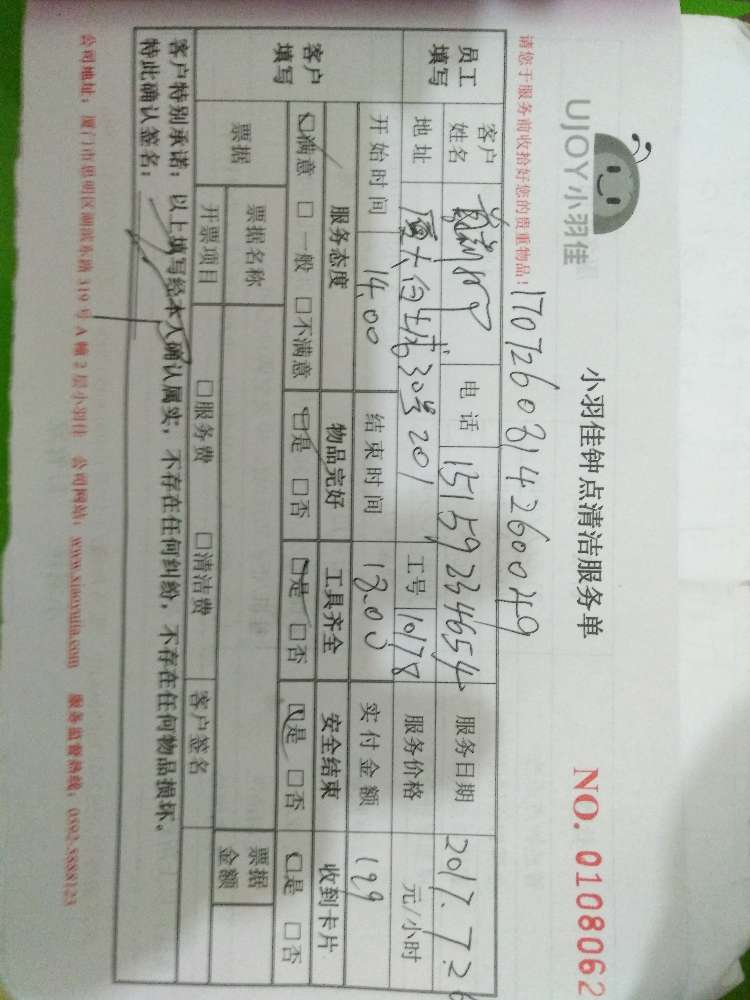 UJOY小羽佳
小羽佳钟点清洁服务单
NO. 0108062
请您于服务前收拾好您的贵重物品!
1707260314260049
员工填写
客户姓名 电话 15159234654 服务日期 2017.7.26
地址 厦大 30号201 工号 10178 服务价格 元/小时
开始时间 14.00 结束时间 18.00 实付金额 199
客户填写
服务态度 物品完好 工具齐全 安全结束 收到卡片
□满意 □一般 □不满意 □是 □否 □是 □否 □是 □否 □是 □否
票据 票据名称 票据金额
开票项目 □服务费 □清洁费 客户签名
客户特别承诺:以上填写经本人确认属实,不存在任何纠纷,不存在任何物品损坏。
特此确认签名:
公司地址:厦门市思明区湖滨东路319号A幢2层小羽佳 公司网站:www.xiaoyujia.com 服务监督热线:0592-5888123